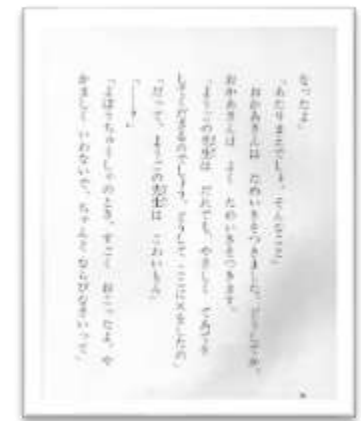 なったよ」
「あたりまえでしょ、そんなこと」
おかあさんは ためいきをつきました。どうしてか、
おかあさんは よく ためいきをつきます。
「ようごの先生は だれでも、やさしく てあてを
してくださるのでしょう。どうして、ここにくるしたの」
「だって、ようごの先生は こわいもん」
「―――」
「よぼうちゅうしゃのとき、すごく おこったよ。や
かましく いわないで、ちゃんとならびなさいって」